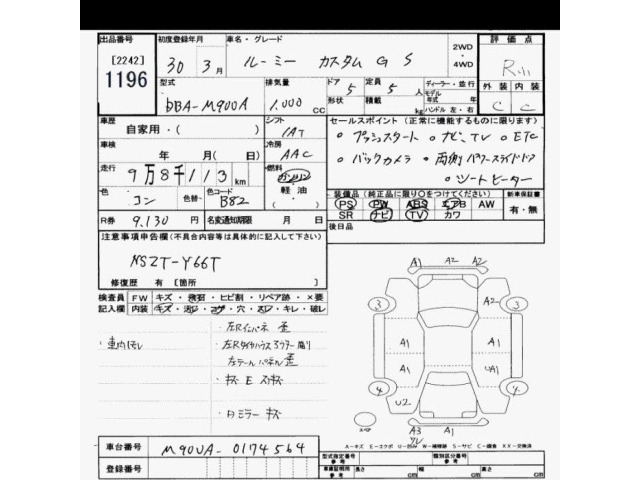 出品番号 初度登録年月 車名・グレード 2WD・4WD 評価点
[2242] 30年 3月 ルーミー カスタム G S R小
1196 型式 排気量 ドア 定員 ディーラー・並行 外装 内装
DBA-M900A 1.000 CC 5 5人 モデル 年式 年 C C
形状 積載 kg ハンドル 左・右
車歴 自家用・( ) シフト IAT セールスポイント (正常に機能するものに限る)
車検 年 月(日) 冷房 AAC ・プッシュスタート ・ナビ、TV ・ETC
走行 9万8千113km 燃料 ガソリン ・バックカメラ ・両側パワースライドドア
色 コン 色替 色コード B82 軽油 ・シートヒーター
装備品 (純正品に限り○をつけてください) 新車保証書
R券 9.130円 名変通知期限 月 日 PS PW ABS エアB AW 有・無
SR ナビ TV カワ
注意事項申告欄 (不具合内容等は具体的に記入して下さい) 後日品
NSZT-Y66T
修復歴 有 [箇所
A1 A2 A2
検査員 FW キズ・飛石・ヒビ割・リペア跡・×要 3 A2 3
記入欄 内装 キズ・汚レ・コゲ・穴・スレ・キレ・破レ
・左Rインパネ 歪
・車内汚レ ・左Rタイヤハウス A1 A1
左テールパネル歪 A1 UA1
・キズ E ススキズ 4 4
U2
・Dミラーキズ スペア
A3 A1
ワレ
A-キズ E-エクボ U-凹み W-補修跡 S-サビ C-腐食 XX-交換済
車台番号 M900A-0174564 型式指定番号 参考 類別区分番号 参考
登録番号 車輌証明用 参考 長さ cm 幅 cm 高さ cm